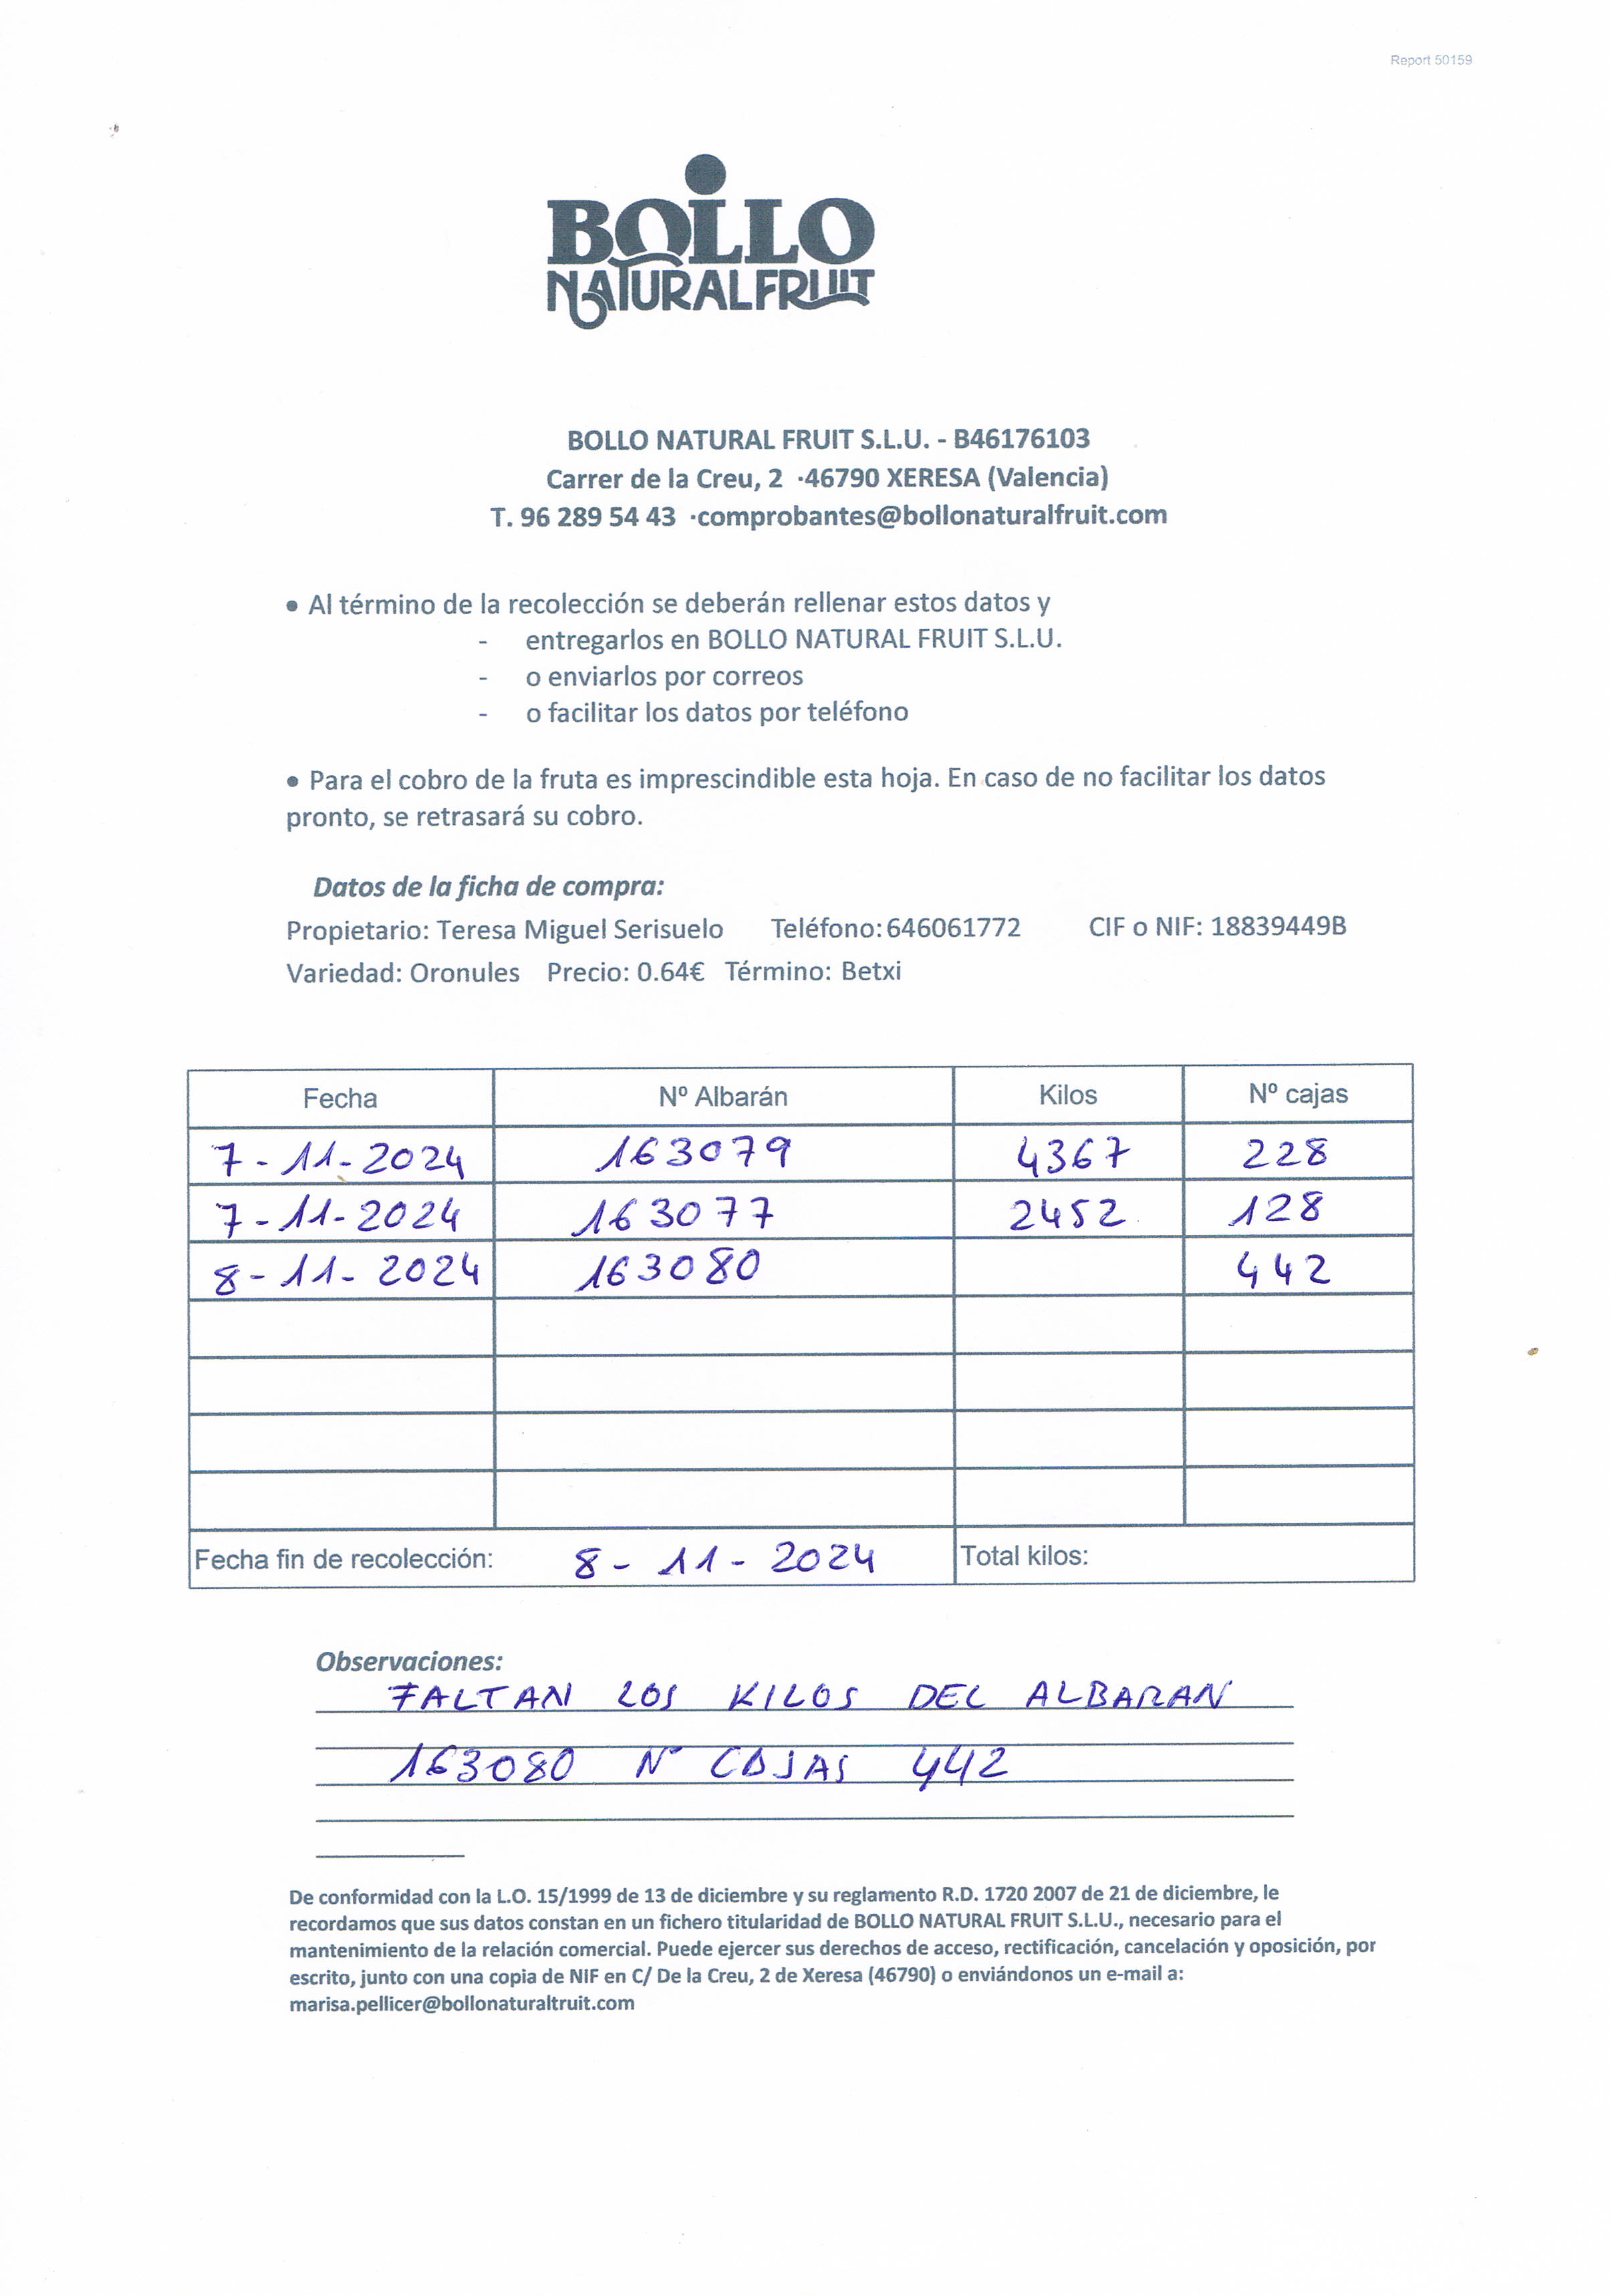 Report 50159
BOLLO
NATURALFRUIT
BOLLO NATURAL FRUIT S.L.U. - B46176103
Carrer de la Creu, 2 ·46790 XERESA (Valencia)
T. 96 289 54 43 ·comprobantes@bollonaturalfruit.com
• Al término de la recolección se deberán rellenar estos datos y
- entregarlos en BOLLO NATURAL FRUIT S.L.U.
- o enviarlos por correos
- o facilitar los datos por teléfono
• Para el cobro de la fruta es imprescindible esta hoja. En caso de no facilitar los datos
pronto, se retrasará su cobro.
Datos de la ficha de compra:
Propietario: Teresa Miguel Serisuelo Teléfono: 646061772 CIF o NIF: 18839449B
Variedad: Oronules Precio: 0.64€ Término: Betxi
Fecha Nº Albarán Kilos Nº cajas
7-11-2024 163079 4367 228
7-11-2024 163077 2452 128
8-11-2024 163080 442
Fecha fin de recolección: 8-11-2024 Total kilos:
Observaciones:
FALTAN LOS KILOS DEL ALBARAN
163080 Nº CAJAS 442
De conformidad con la L.O. 15/1999 de 13 de diciembre y su reglamento R.D. 1720 2007 de 21 de diciembre, le
recordamos que sus datos constan en un fichero titularidad de BOLLO NATURAL FRUIT S.L.U., necesario para el
mantenimiento de la relación comercial. Puede ejercer sus derechos de acceso, rectificación, cancelación y oposición, por
escrito, junto con una copia de NIF en C/ De la Creu, 2 de Xeresa (46790) o enviándonos un e-mail a:
marisa.pellicer@bollonaturaltruit.com